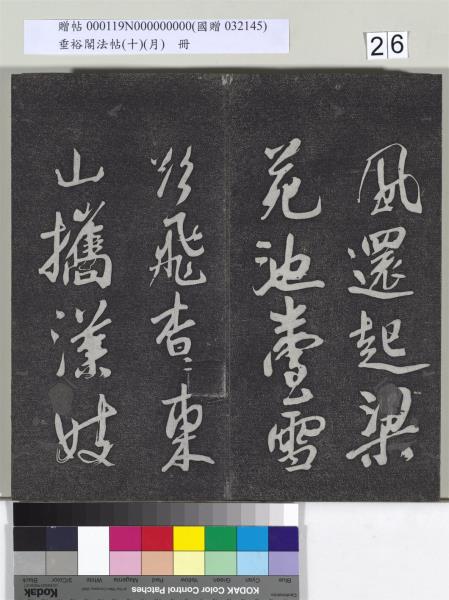 贈帖 000119N000000000(國贈 032145)
垂裕閣法帖(十)(月) 冊
26
風還起梁
苑池臺雪
欲飛杳〻東
山攜漢妓
Blue Cyan Green Yellow Red Magenta White 3/Color Black
KODAK Color Control Patches
Kodak